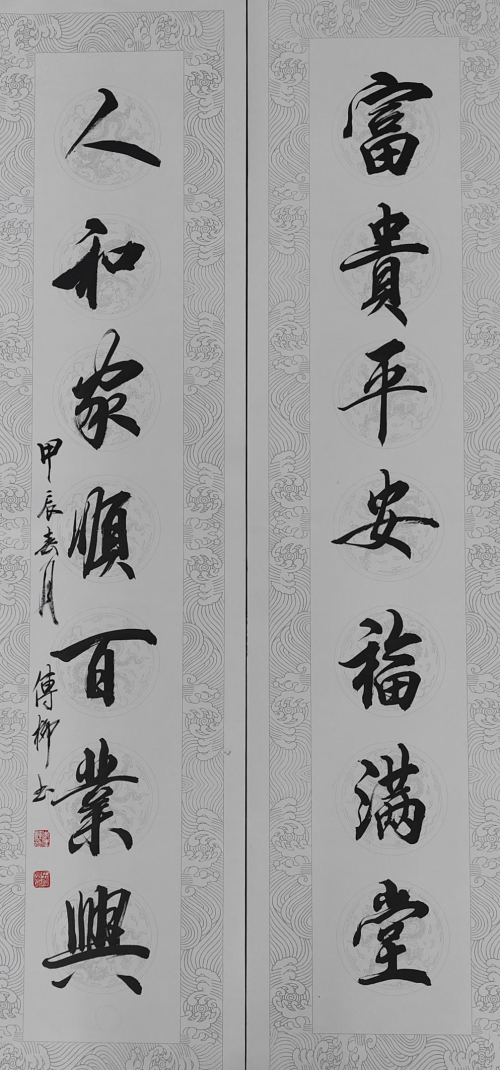 富貴平安福满堂
人和家順百業興
甲辰春月
傅柳书